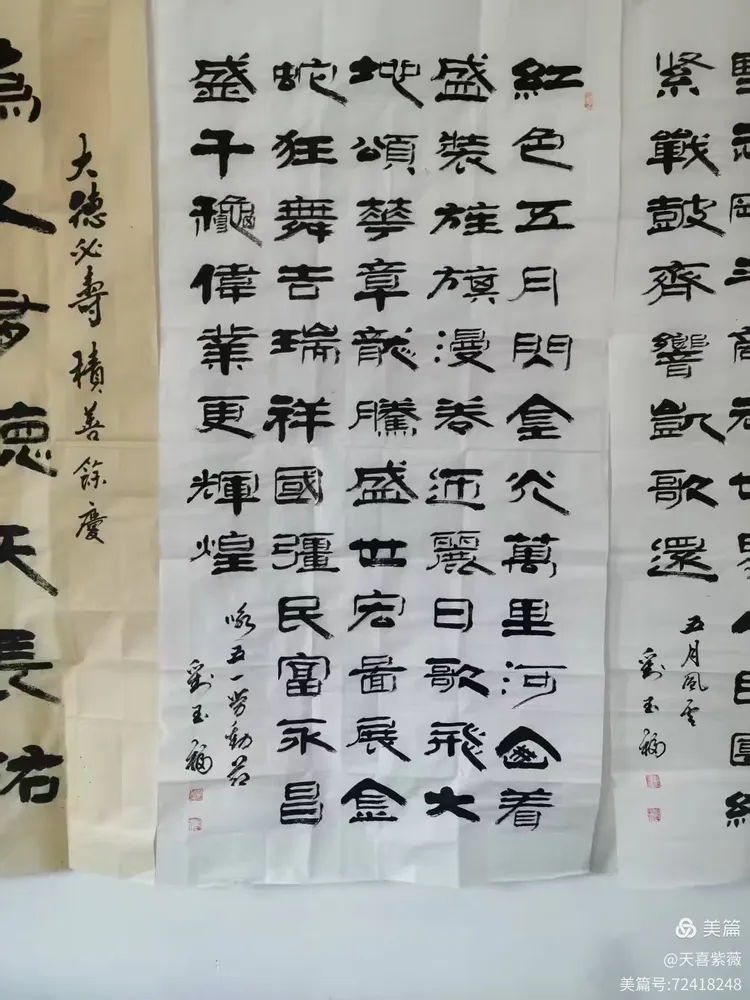 紧戰鼓齊響凱歌還
五月風雲
劉玉福
紅色五月閃金光萬里河山着
盛裝旌旗漫卷迎麗日歌飛大
地頌華章龍騰盛世宏圖展金
蛇狂舞吉瑞祥國疆民富永昌
盛千龝偉業更輝煌
詠五一勞動節
劉玉福
大德必壽 積善餘慶
德天長佑
美篇
@天喜紫薇
美篇号:72418248